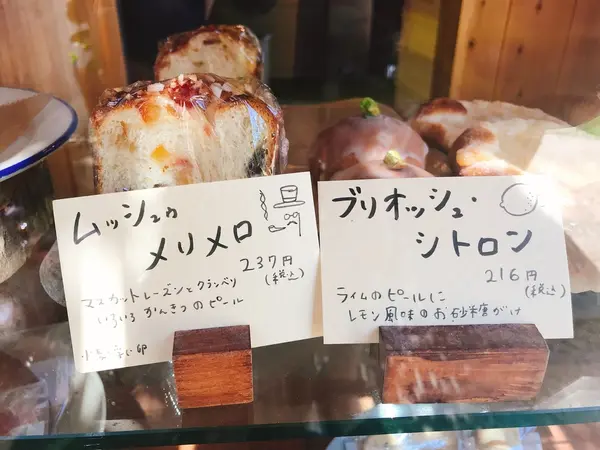 ムッシュゥ
メリメロ
237円
(税込)
マスカットレーズンとクランベリ
いろいろかんきつのピール
小麦 乳 卵
ブリオッシュ・
シトロン
216円
(税込)
ライムのピールに
レモン風味のお砂糖がけ